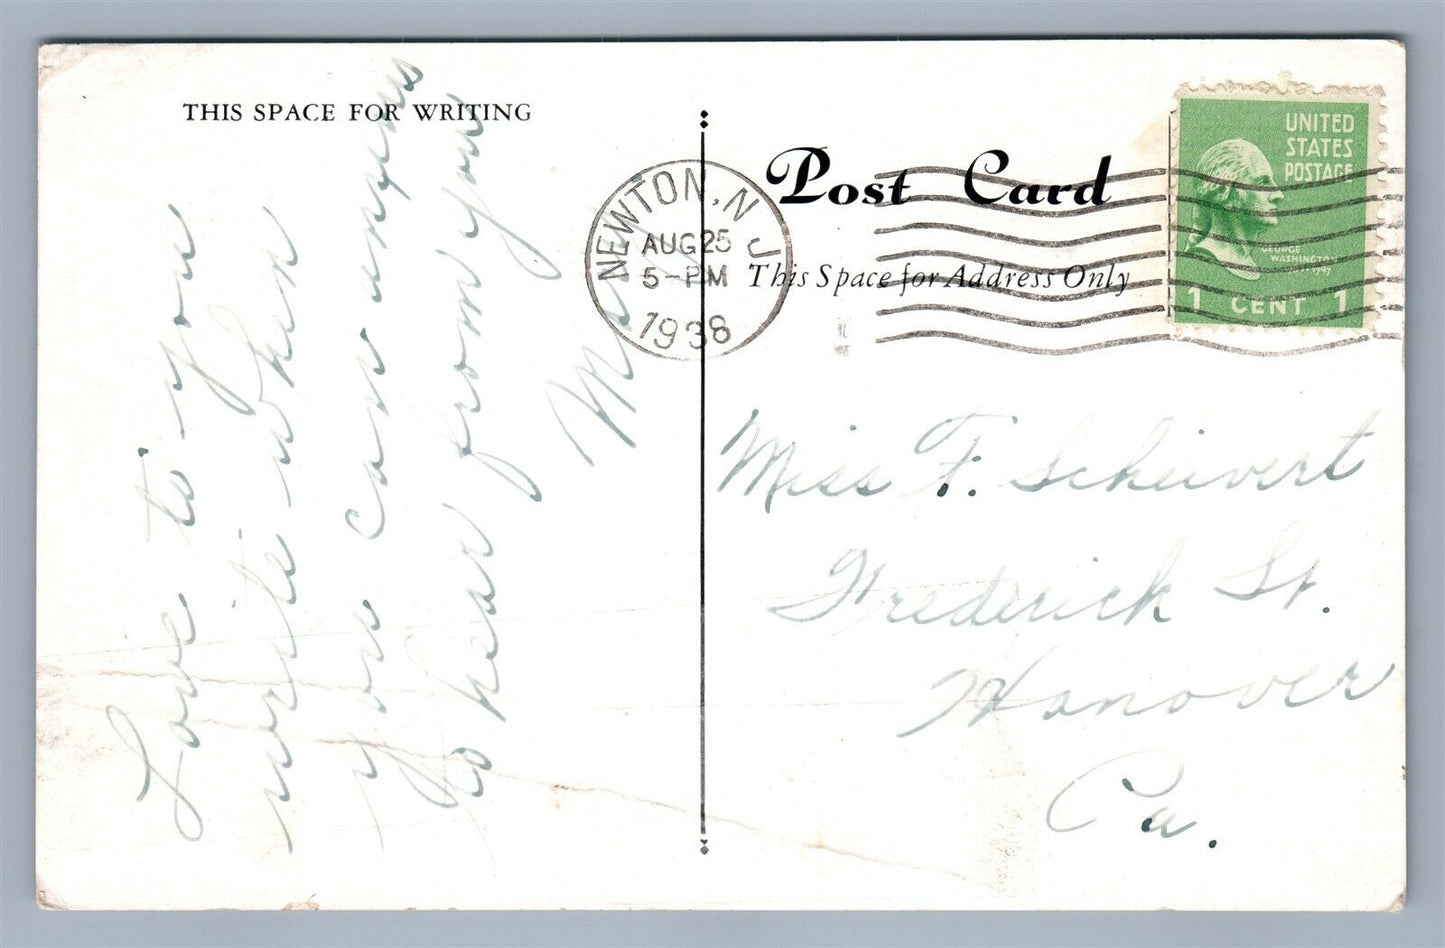 THIS SPACE FOR WRITING
Love to you
write when
you can anxious
to hear from you
Post Card
This Space for Address Only
NEWTON, N J
AUG 25
5-PM
1938
UNITED
STATES
POSTAGE
GEORGE
WASHINGTON
1 CENT 1
Miss F. Scheivert
Frederick St.
Hanover
Pa.